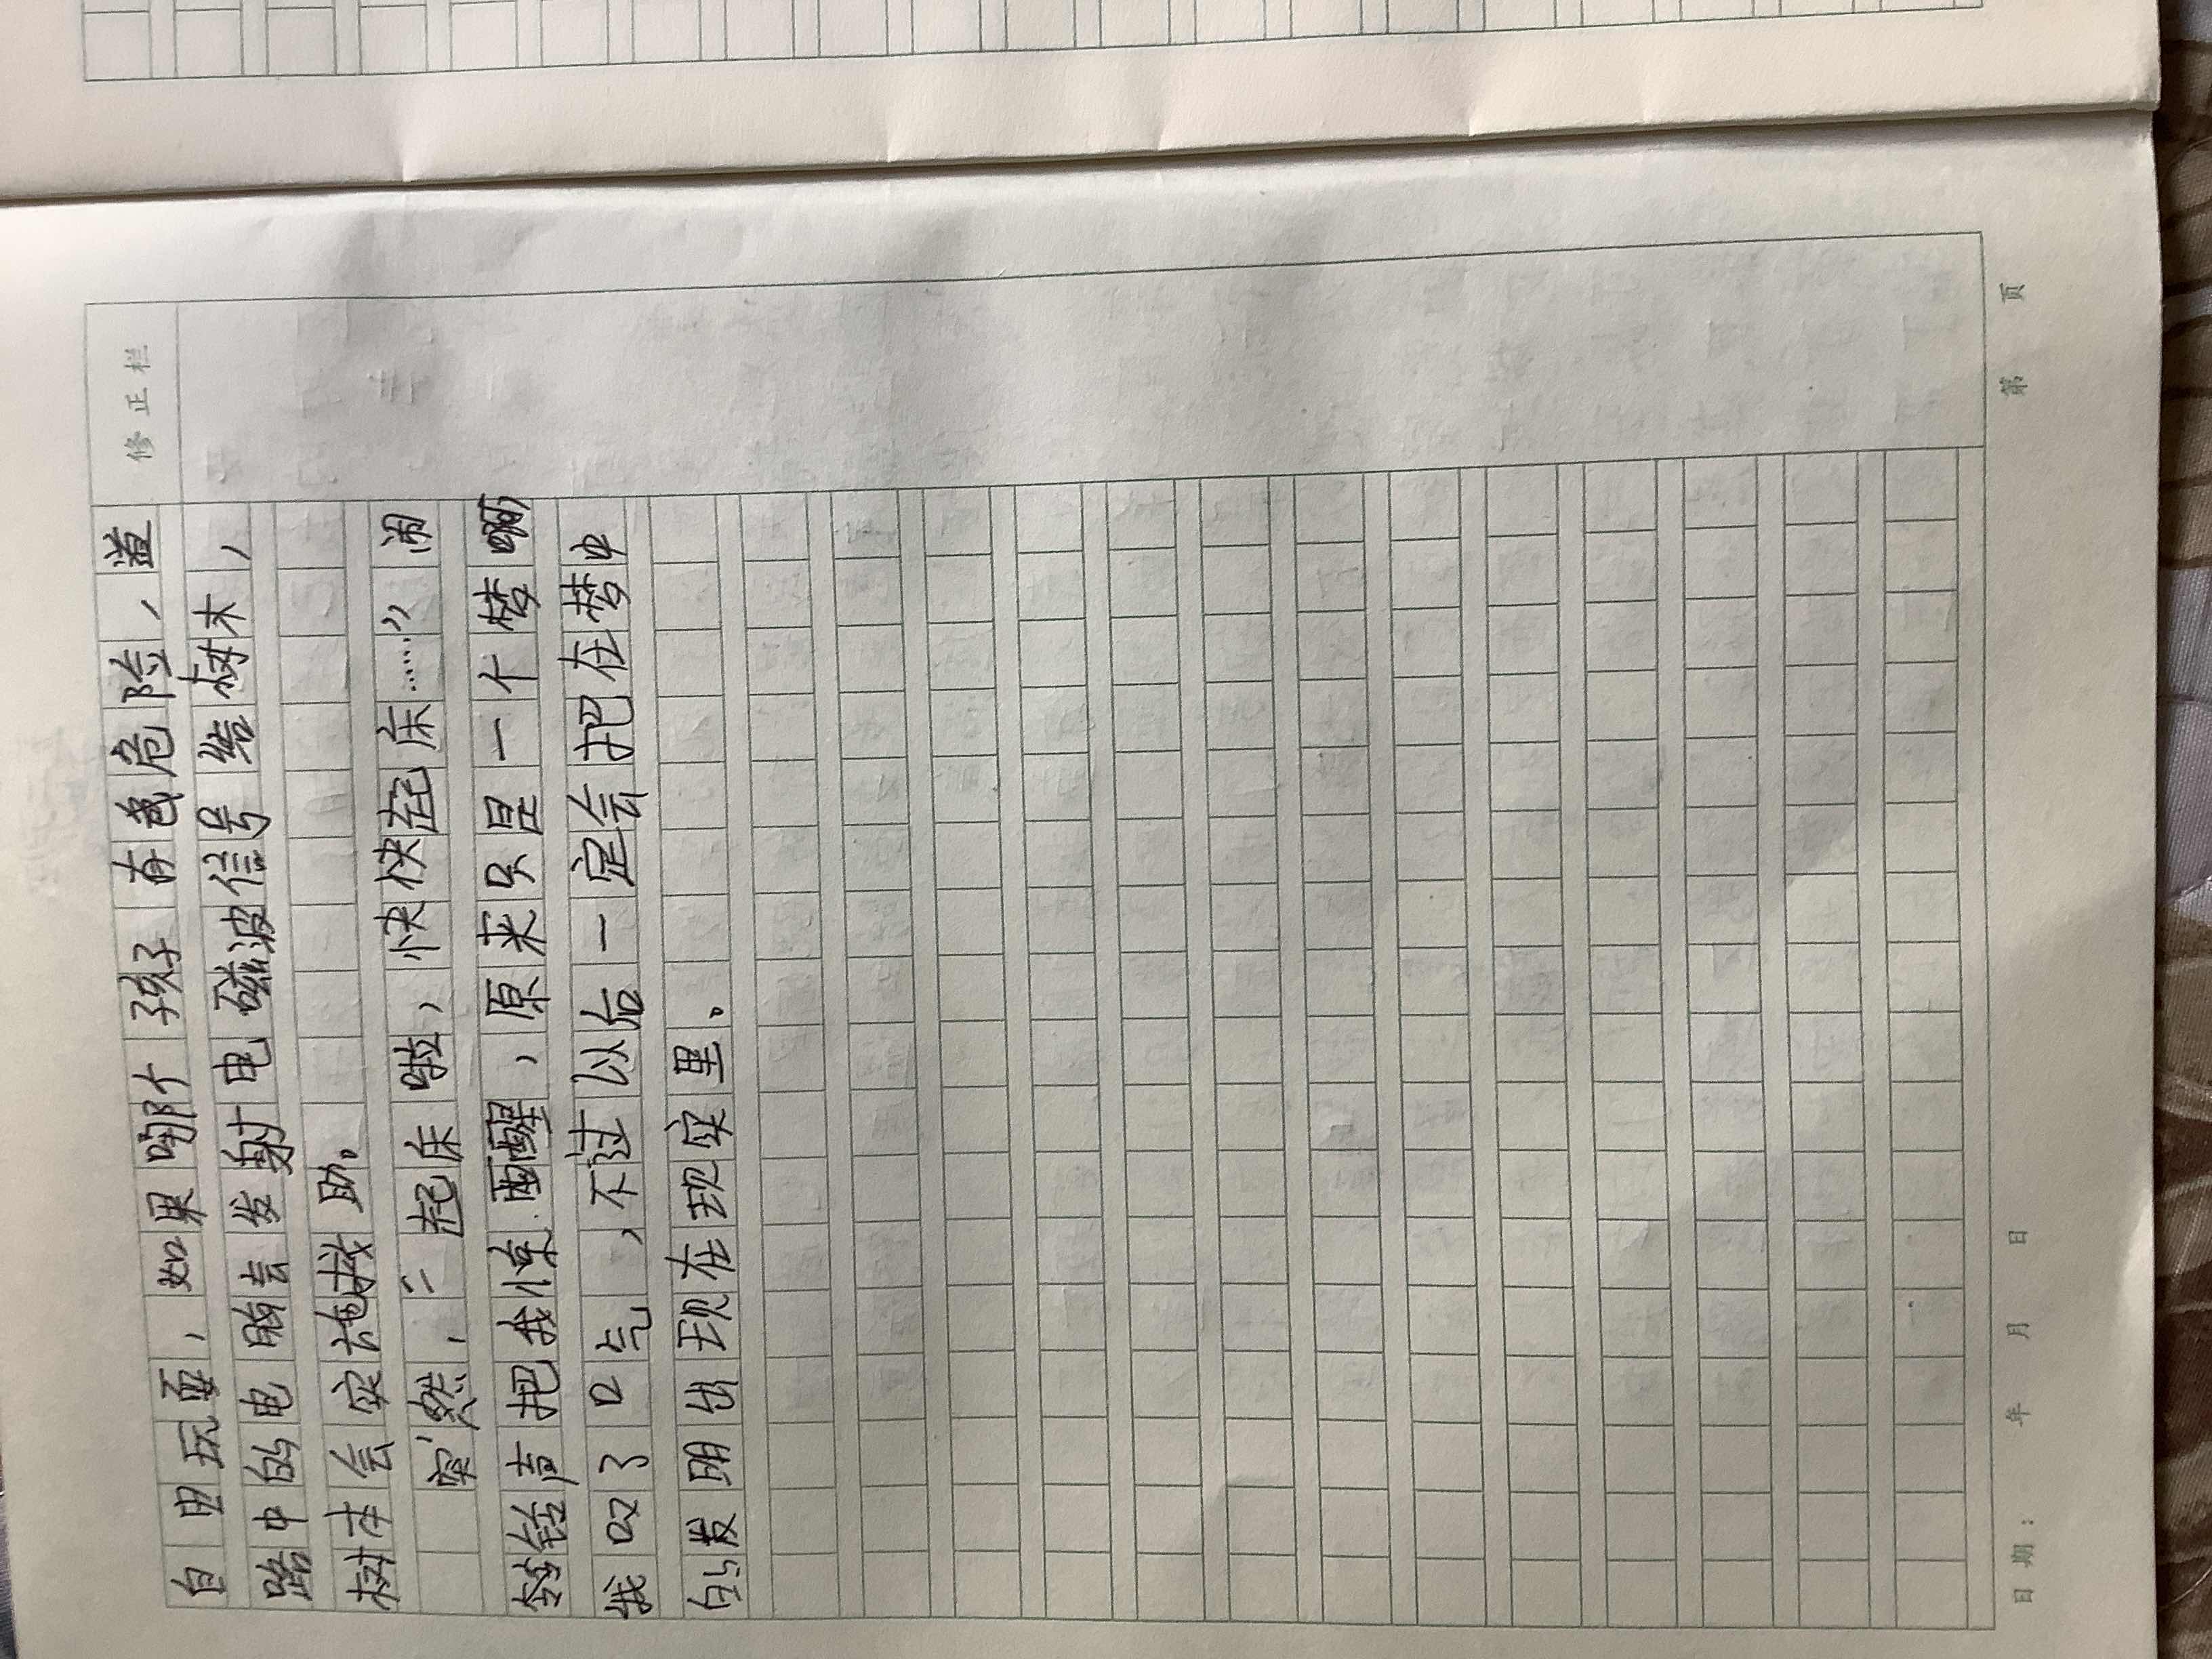 修正栏
自由玩耍，如果哪个孩子有危险，道
路中的电脑会发射电磁波信号给树木，
树木会实施救助。
突然，“起床啦，快快起床……”闹
铃铃声把我惊醒，原来只是一个梦啊
我叹了口气，不过以后一定会把在梦中
的发明出现在现实里。
日期： 年 月 日 第 页